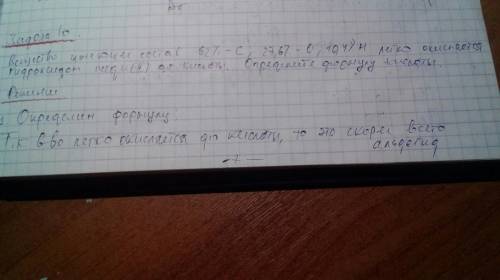 Задача 10
Вещество имеющее состав 62% - C, 27,6% - O, 10,4% H легко окисляется
гидроксидом меди (II) до кислоты. Определите формулу кислоты.
Решение
Определим формулу
Т.к в-во легко окисляется до кислоты, то это скорей всего
альдегид